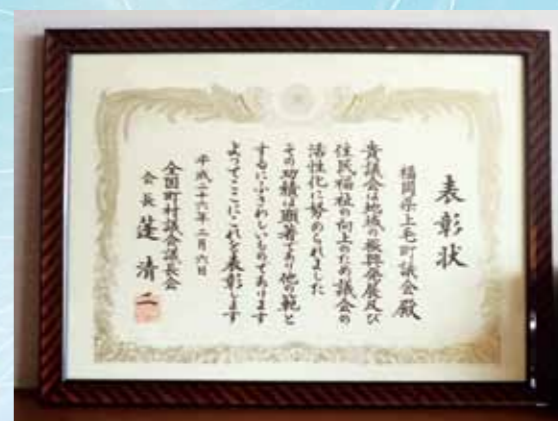 表彰状
福岡県上毛町議会殿
貴議会は地域の振興発展及び
住民福祉の向上のため議会の
活性化に努められました
その功績は顕著であり他の範と
するにふさわしいものであります
よってここにこれを表彰します
平成二十六年二月六日
全国町村議会議長会
会長 蓬 清二